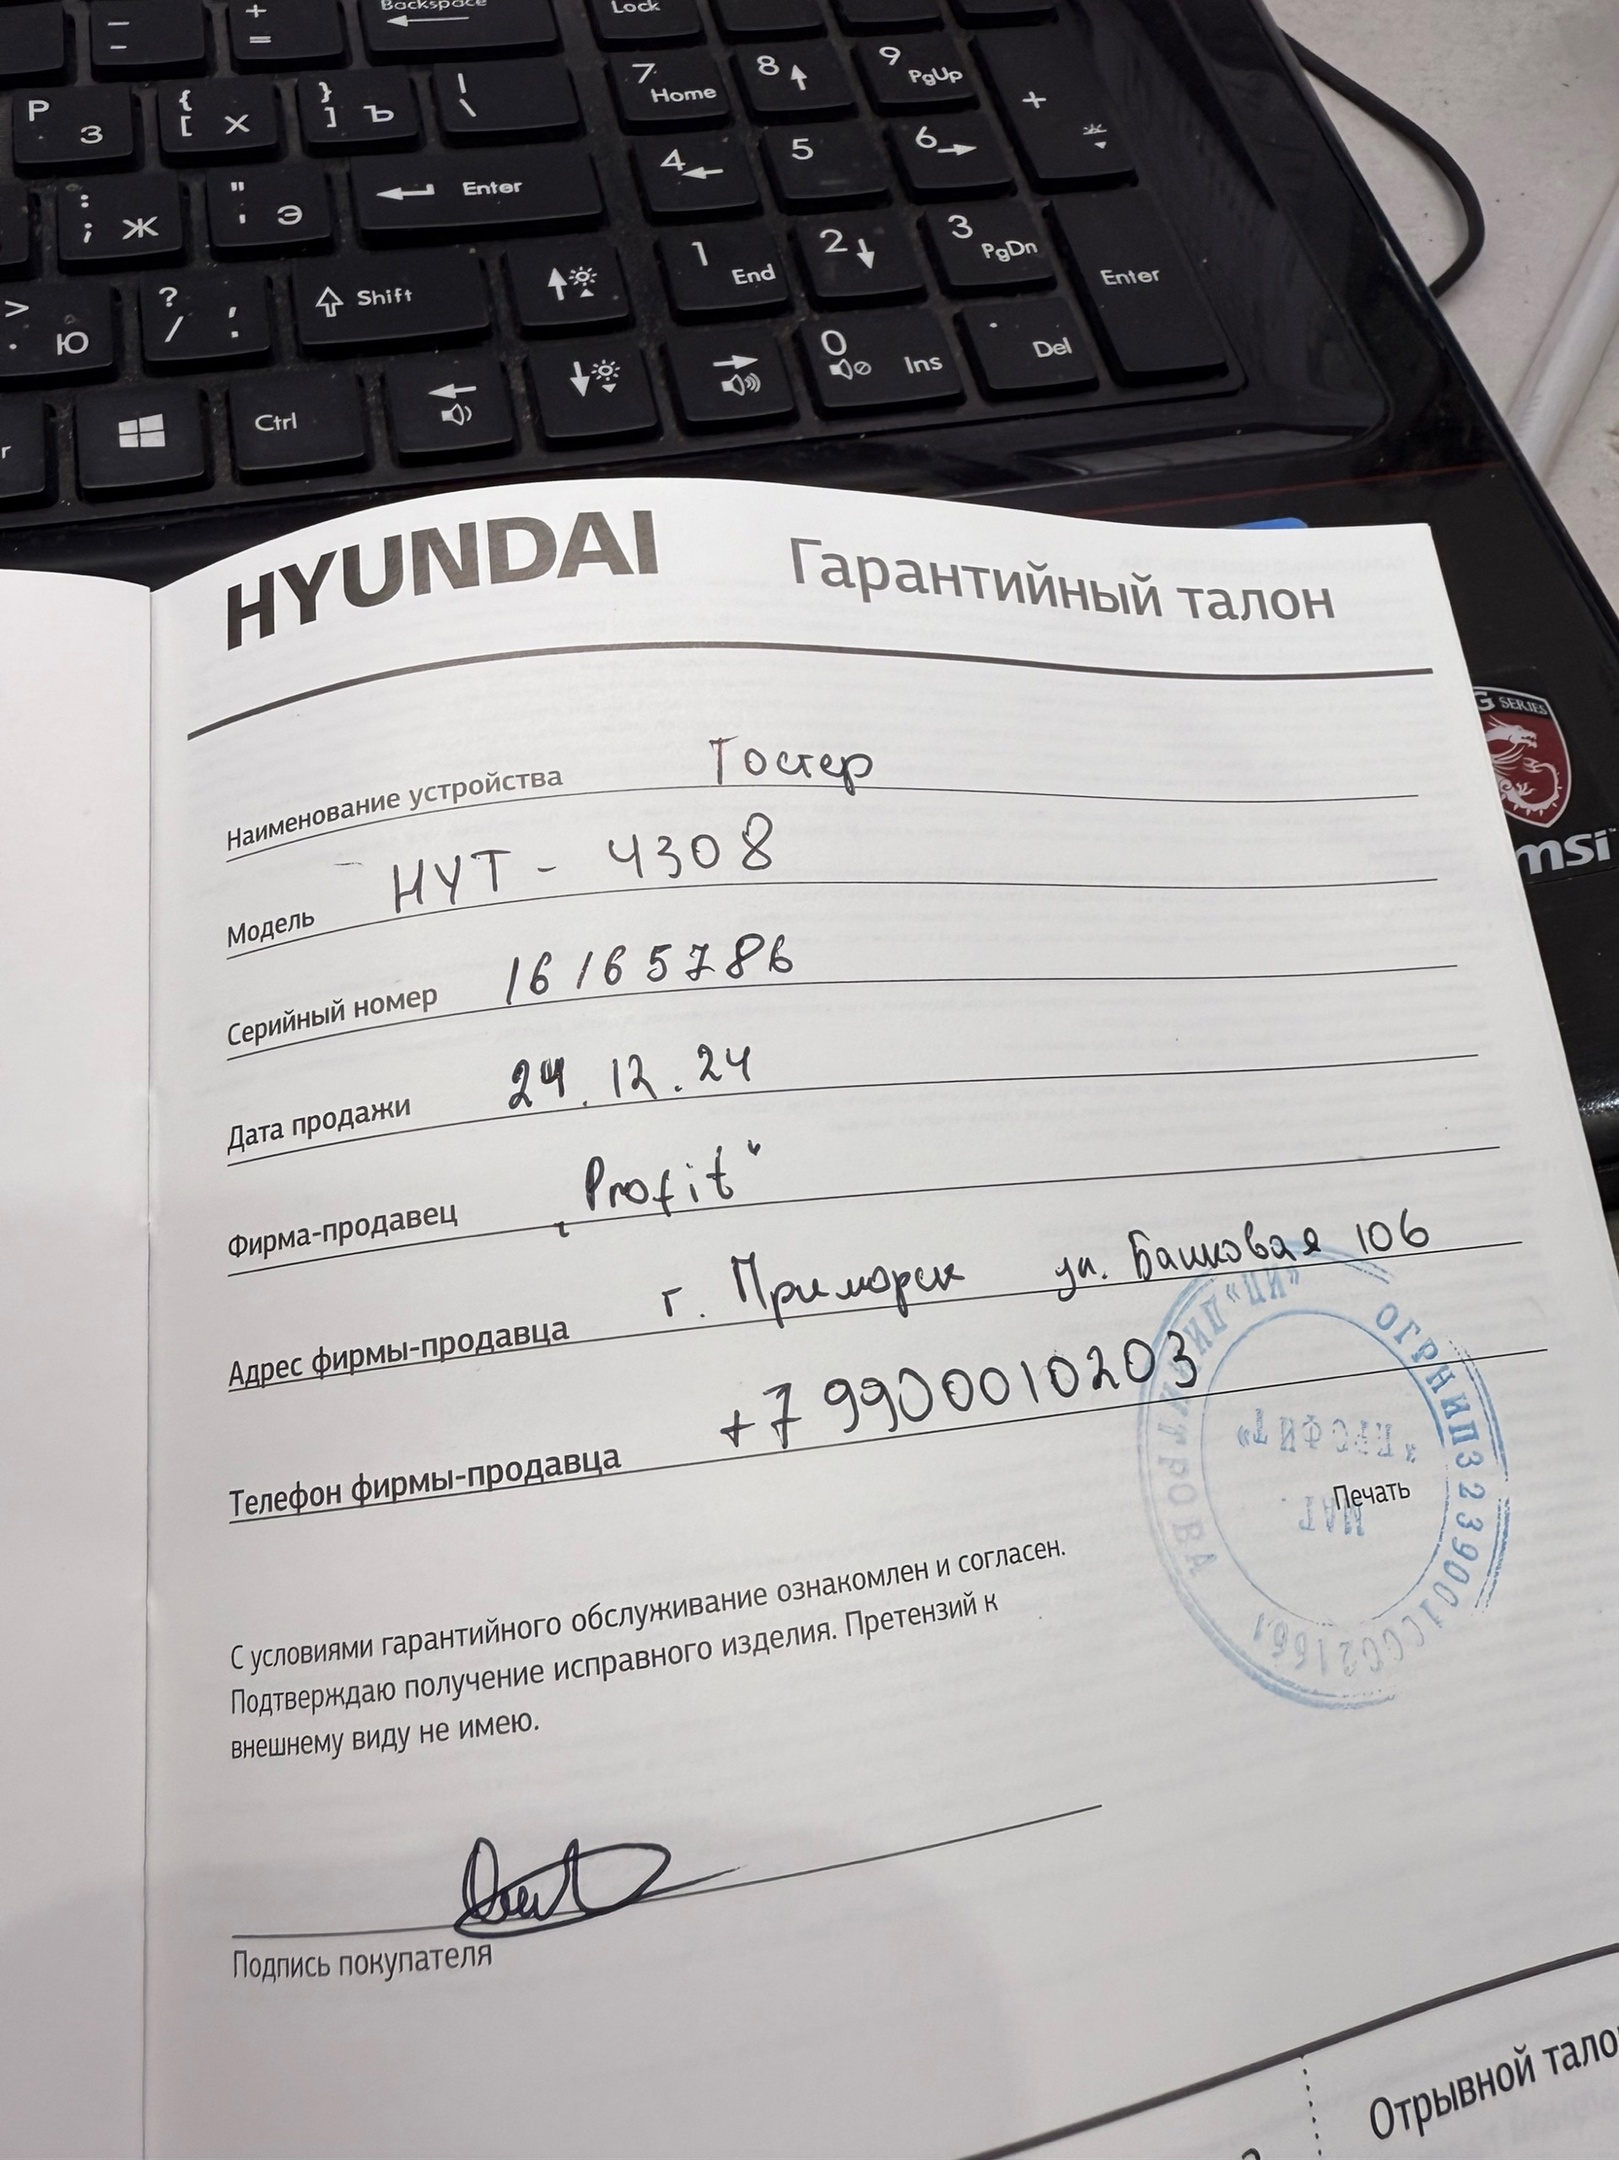 — –
+ =
Backspace
Lock
P З
{ [ Х
} ] Ъ
| \
7 Home
8
9 PgUp
+
: ; Ж
" ' Э
Enter
4
5
6
> . Ю
? / , .
Shift
1 End
2
3 PgDn
Enter
Ctrl
0 Ins
. Del
HYUNDAI Гарантийный талон
G SERIES
msi
Наименование устройства Тостер
Модель HYT - 4308
Серийный номер 16165786
Дата продажи 24.12.24
Фирма-продавец „Profit“
Адрес фирмы-продавца г. Приморск ул. Башковая 106
Телефон фирмы-продавца +79900010203
ОГРНИП323900100021661
Печать
МАГ.
"ПРОФИТ"
С условиями гарантийного обслуживание ознакомлен и согласен.
Подтверждаю получение исправного изделия. Претензий к
внешнему виду не имею.
Подпись покупателя
Отрывной тало